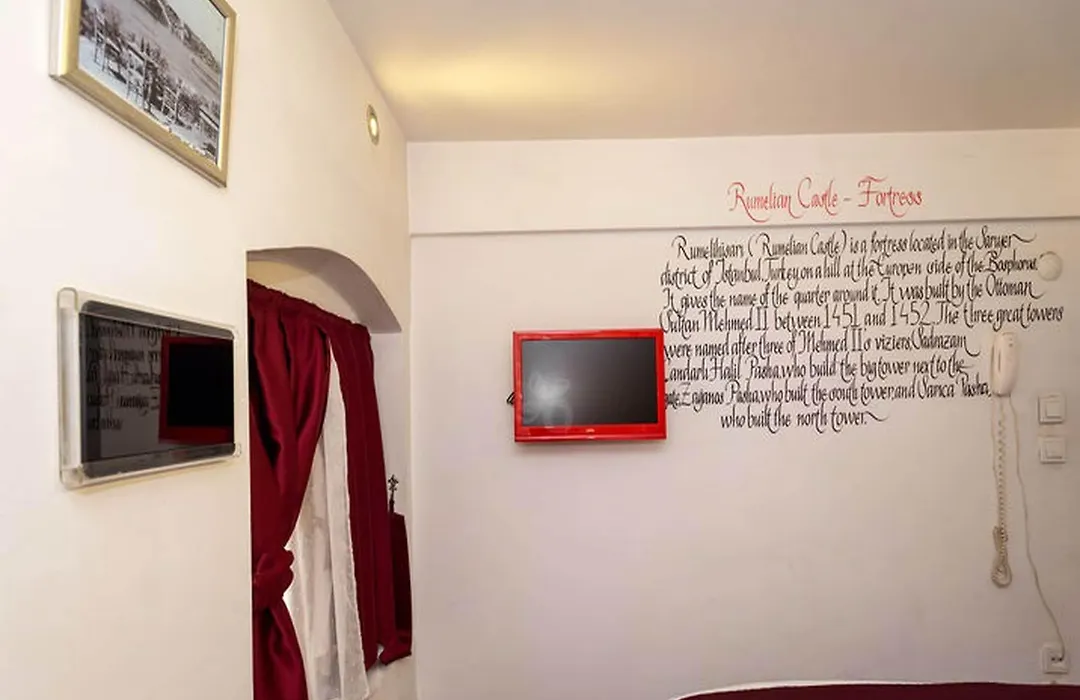 Rumelian Castle - Fortress
Rumelihisarı (Rumelian Castle) is a fortress located in the Sarıyer
district of Istanbul, Turkey, on a hill at the Europen side of the Bosphorus.
It gives the name of the quarter around it. It was built by the Ottoman
Sultan Mehmed II between 1451 and 1452. The three great towers
were named after three of Mehmed II's viziers, Sadrazam
Çandarlı Halil Pasha, who build the big tower next to the
gate, Zaganos Pasha, who built the south tower, and Sarıca Pasha,
who built the north tower.